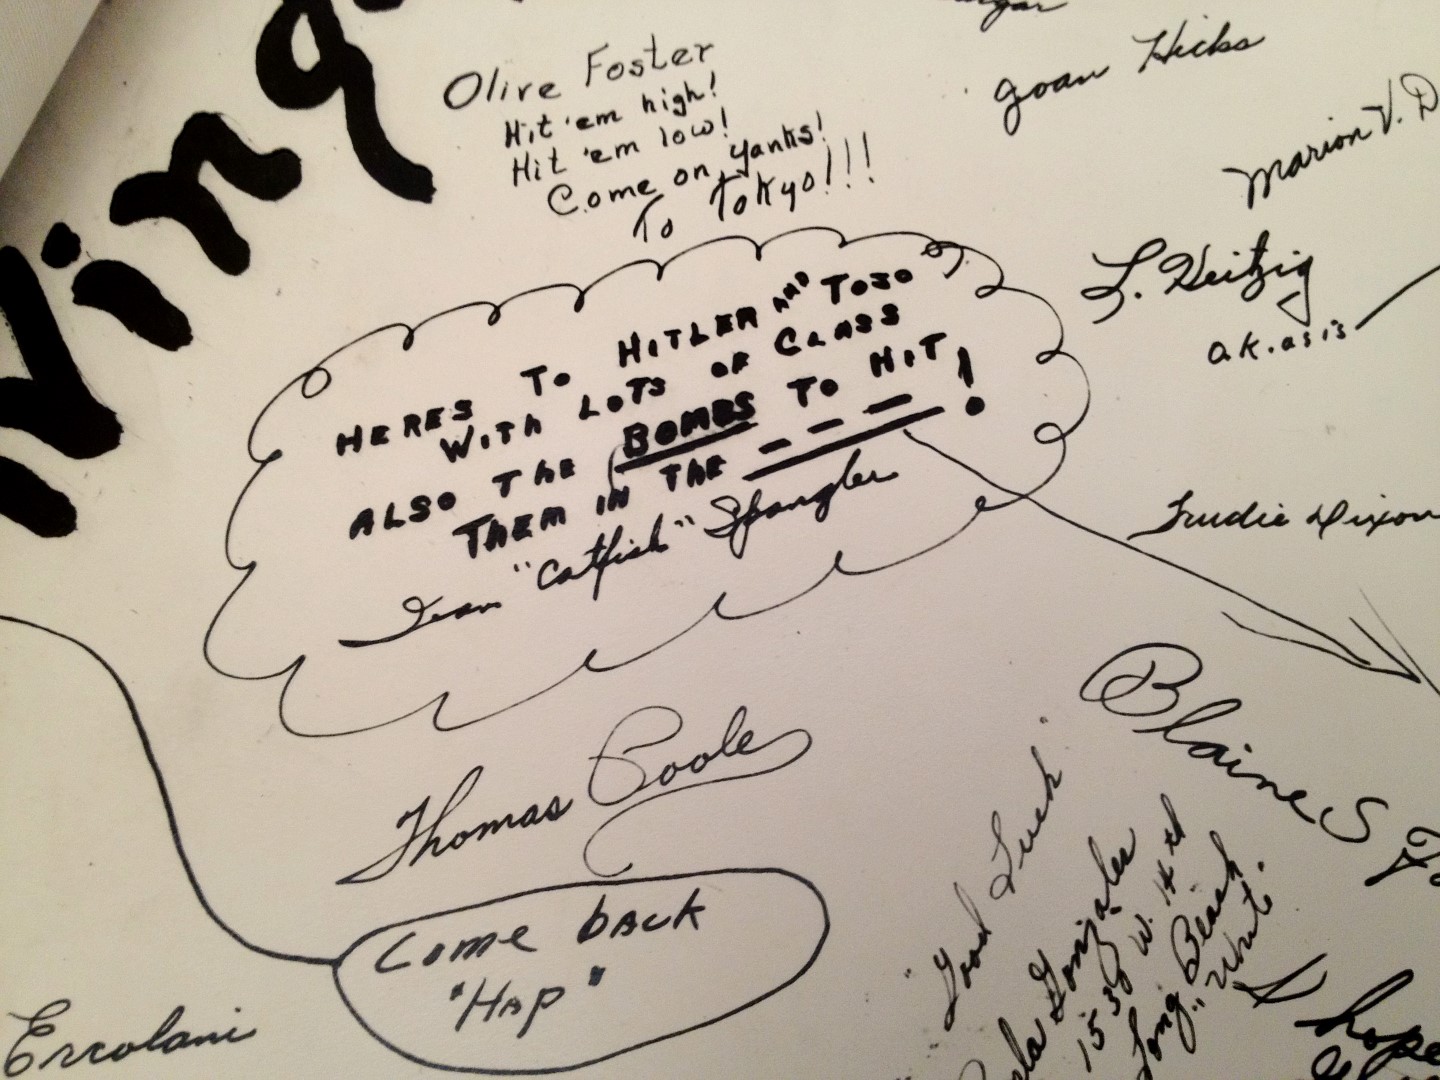 Wing
Olive Foster
Hit 'em high!
Hit 'em low!
Come on yanks!
To Tokyo!!!
Joan Hicks
Marion V. D
L. Heitzig
a.k.asis
HERES TO HITLER AND TOJO
WITH LOTS OF CLASS
ALSO THE BOMBS TO HIT
THEM IN THE _ _ _ !
"Catfish" Spangler
Trudie Dixon
Blaine S
Thomas Poole
COME BACK
"HAP"
Ercolani
"Good Luck"
Gonzales
1538 W. 14th
Long Beach
"Write"
I hope